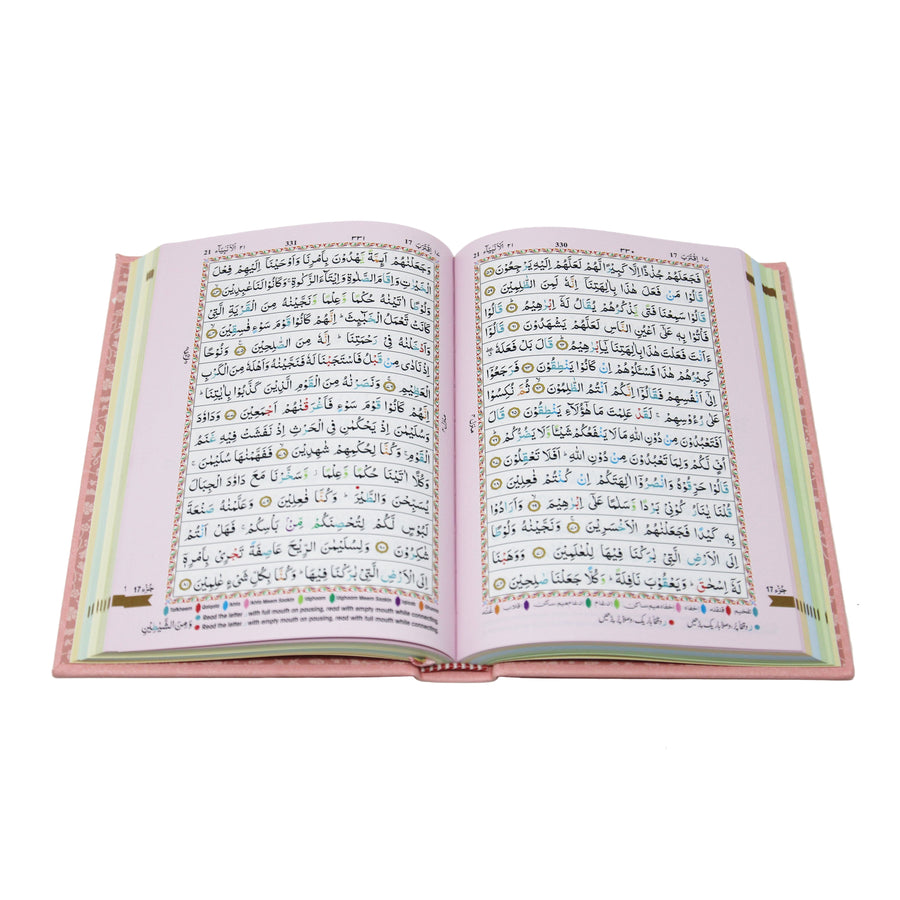 21 ٢١ اَلْاَنْۢبِيَآء 330 ٣٣٠ 17 اِقْتَرَبَ ١٧
فَجَعَلَهُمْ جُذٰذًا اِلَّا كَبِيْرًا لَّهُمْ لَعَلَّهُمْ اِلَيْهِ يَرْجِعُوْنَ ۝
قَالُوْا مَنْ فَعَلَ هٰذَا بِاٰلِهَتِنَاۤ اِنَّهٗ لَمِنَ الظّٰلِمِيْنَ ۝
قَالُوْا سَمِعْنَا فَتًى يَّذْكُرُهُمْ يُقَالُ لَهٗۤ اِبْرٰهِيْمُ ۝ قَالُوْا
فَاْتُوْا بِهٖ عَلٰۤى اَعْيُنِ النَّاسِ لَعَلَّهُمْ يَشْهَدُوْنَ ۝ قَالُوْۤا
ءَاَنْتَ فَعَلْتَ هٰذَا بِاٰلِهَتِنَا يٰۤاِبْرٰهِيْمُ ۝ قَالَ بَلْ فَعَلَهٗ
كَبِيْرُهُمْ هٰذَا فَسْـَٔلُوْهُمْ اِنْ كَانُوْا يَنْطِقُوْنَ ۝ فَرَجَعُوْۤا
اِلٰۤى اَنْفُسِهِمْ فَقَالُوْۤا اِنَّكُمْ اَنْتُمُ الظّٰلِمُوْنَ ۝ ثُمَّ نُكِسُوْا
عَلٰى رُءُوْسِهِمْ ۚ لَقَدْ عَلِمْتَ مَا هٰۤؤُلَآءِ يَنْطِقُوْنَ ۝ قَالَ
اَفَتَعْبُدُوْنَ مِنْ دُوْنِ اللّٰهِ مَا لَا يَنْفَعُكُمْ شَيْـًٔا وَّلَا يَضُرُّكُمْ ۝
اُفٍّ لَّكُمْ وَلِمَا تَعْبُدُوْنَ مِنْ دُوْنِ اللّٰهِ ؕ اَفَلَا تَعْقِلُوْنَ ۝
قَالُوْا حَرِّقُوْهُ وَانْصُرُوْۤا اٰلِهَتَكُمْ اِنْ كُنْتُمْ فٰعِلِيْنَ ۝
قُلْنَا يٰنَارُ كُوْنِيْ بَرْدًا وَّسَلٰمًا عَلٰۤى اِبْرٰهِيْمَ ۝ وَاَرَادُوْا
بِهٖ كَيْدًا فَجَعَلْنٰهُمُ الْاَخْسَرِيْنَ ۝ وَنَجَّيْنٰهُ وَلُوْطًا
اِلَى الْاَرْضِ الَّتِيْ بٰرَكْنَا فِيْهَا لِلْعٰلَمِيْنَ ۝ وَوَهَبْنَا
لَهٗۤ اِسْحٰقَ ؕ وَيَعْقُوْبَ نَافِلَةً ؕ وَكُلًّا جَعَلْنَا صٰلِحِيْنَ ۝
17 جُزْء
21 ٢١ اَلْاَنْۢبِيَآء 331 ٣٣١ 17 اِقْتَرَبَ ١٧
وَجَعَلْنٰهُمْ اَئِمَّةً يَّهْدُوْنَ بِاَمْرِنَا وَاَوْحَيْنَاۤ اِلَيْهِمْ فِعْلَ
الْخَيْرٰتِ وَاِقَامَ الصَّلٰوةِ وَاِيْتَآءَ الزَّكٰوةِ ۚ وَكَانُوْا لَنَا عٰبِدِيْنَ ۝
وَلُوْطًا اٰتَيْنٰهُ حُكْمًا وَّعِلْمًا وَّنَجَّيْنٰهُ مِنَ الْقَرْيَةِ الَّتِيْ
كَانَتْ تَّعْمَلُ الْخَبٰٓئِثَ ؕ اِنَّهُمْ كَانُوْا قَوْمَ سَوْءٍ فٰسِقِيْنَ ۝
وَاَدْخَلْنٰهُ فِيْ رَحْمَتِنَا ؕ اِنَّهٗ مِنَ الصّٰلِحِيْنَ ۝ وَنُوْحًا
اِذْ نَادٰى مِنْ قَبْلُ فَاسْتَجَبْنَا لَهٗ فَنَجَّيْنٰهُ وَاَهْلَهٗ مِنَ الْكَرْبِ
الْعَظِيْمِ ۝ وَنَصَرْنٰهُ مِنَ الْقَوْمِ الَّذِيْنَ كَذَّبُوْا بِاٰيٰتِنَا ؕ
اِنَّهُمْ كَانُوْا قَوْمَ سَوْءٍ فَاَغْرَقْنٰهُمْ اَجْمَعِيْنَ ۝ وَدَاوٗدَ
وَسُلَيْمٰنَ اِذْ يَحْكُمٰنِ فِي الْحَرْثِ اِذْ نَفَشَتْ فِيْهِ غَنَمُ
الْقَوْمِ ۚ وَكُنَّا لِحُكْمِهِمْ شٰهِدِيْنَ ۝ فَفَهَّمْنٰهَا سُلَيْمٰنَ ۚ
وَكُلًّا اٰتَيْنَا حُكْمًا وَّعِلْمًا ؗ وَّسَخَّرْنَا مَعَ دَاوٗدَ الْجِبَالَ
يُسَبِّحْنَ وَالطَّيْرَ ؕ وَكُنَّا فٰعِلِيْنَ ۝ وَعَلَّمْنٰهُ صَنْعَةَ
لَبُوْسٍ لَّكُمْ لِتُحْصِنَكُمْ مِّنْۢ بَاْسِكُمْ ۚ فَهَلْ اَنْتُمْ
شٰكِرُوْنَ ۝ وَلِسُلَيْمٰنَ الرِّيْحَ عَاصِفَةً تَجْرِيْ بِاَمْرِهٖۤ
اِلَى الْاَرْضِ الَّتِيْ بٰرَكْنَا فِيْهَا ؕ وَكُنَّا بِكُلِّ شَيْءٍ عٰلِمِيْنَ ۝
17 جُزْء
Tafkheem Qalqala Ikhfa Ikhfa Meem Saakin Idghaam Idghaam Meem Saakin Iqlaab Ghunna
Read the letter ر with full mouth on pausing, read with empty mouth while connecting.
Read the letter ر with empty mouth on pausing, read with full mouth while connecting.
وَمِنَ الشَّيٰطِيْنِ